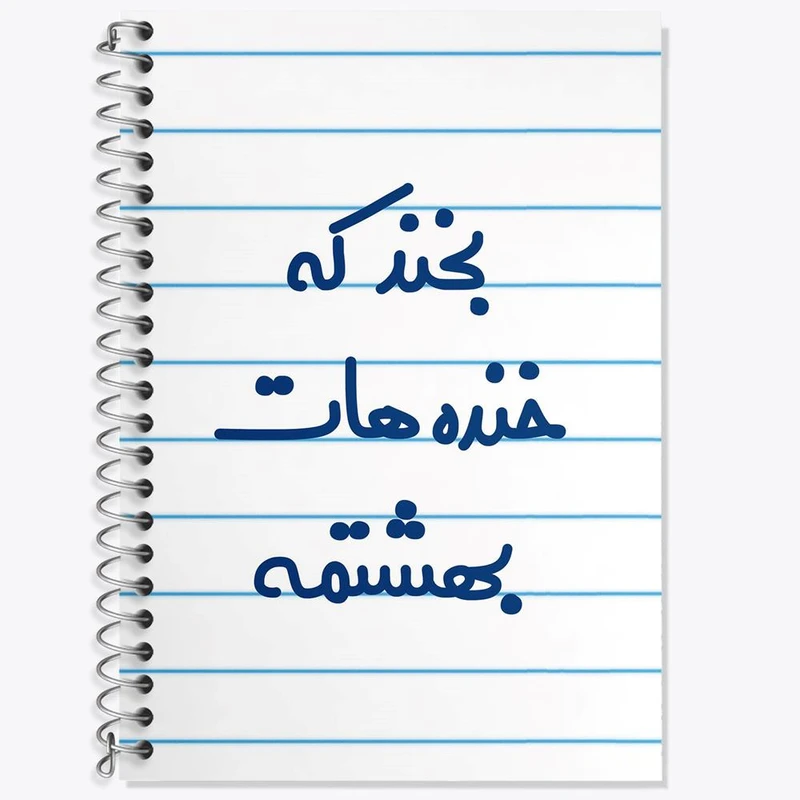 بخند که
خنده هات
بهشتمه